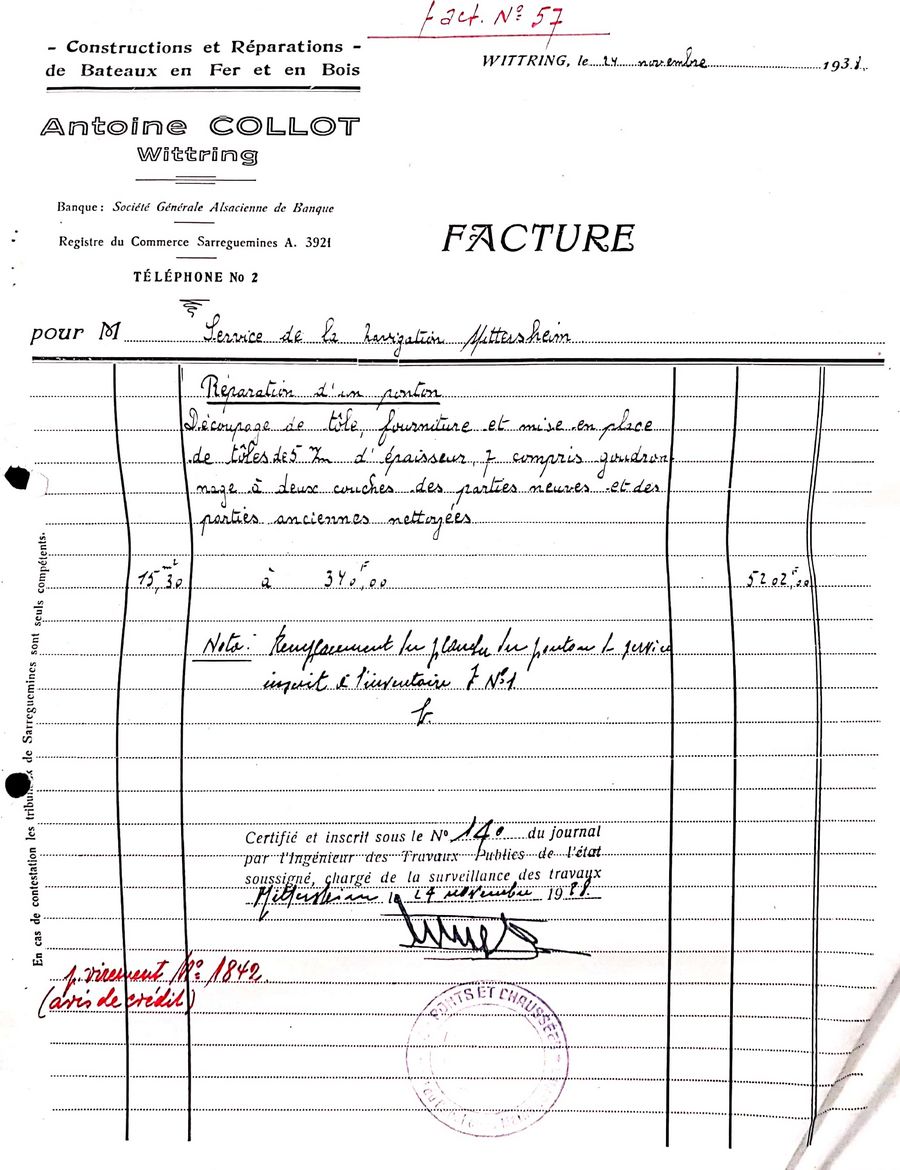 Fact. Nº 57
- Constructions et Réparations -
de Bateaux en Fer et en Bois
WITTRING, le 24 novembre 193
Antoine COLLOT
Wittring
Banque : Société Générale Alsacienne de Banque
Registre du Commerce Sarreguemines A. 3921
TÉLÉPHONE No 2
FACTURE
pour M Service de la navigation Mittersheim
Réparation d'un ponton
Découpage de tôle, fourniture et mise en place
de tôles de 5 m/m d'épaisseur, y compris goudron
nage à deux couches des parties neuves et des
parties anciennes nettoyées
15,30 m² à 340F,00 5202F,00
Nota: Remplacement du du ponton de service
inscrit à l'inventaire Nº 1
Certifié et inscrit sous le Nº 140 du journal
par l'Ingénieur des Travaux Publics de l'état
soussigné, chargé de la surveillance des travaux
Mittersheim le 24 novembre 1938.
p. virement Nº 1842.
(avis de crédit)
PONTS ET CHAUSSÉES
En cas de contestation les tribunaux de Sarreguemines sont seuls compétents.